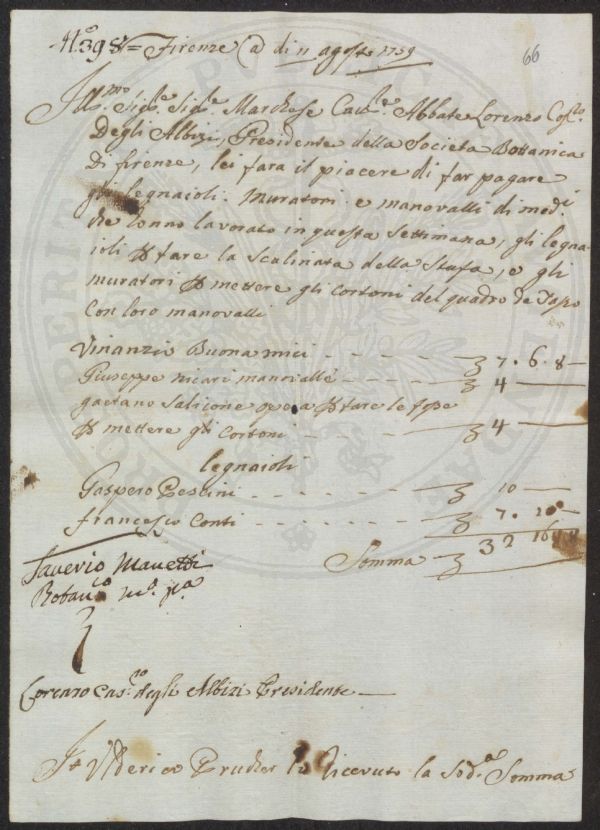 N.º 398 = Firenze (a di 11 agosto 1759
66
Ill.mo Sig.re Sig.re Marchese Cav.re Abbate Lorenzo
Degli Albizi, Presidente della Societa Bottanica
Di firenze, lei fara il piacere di far pagare
gli legnaioli. Muratori e manovalli di med.i
che lonno lavorato in questa Settimana, gli legna=
ioli p fare la Scalinata della Stufa, e gli
muratori p mettere gli Cortoni del quadro de
Con loro manovalli
Vinanzio Buonamici - - - - 7. 6. 8
Giuseppe nicari manovalle - - - - 4
gaetano Salicone opera p fare le fosse
p mettere gli Cortoni - - - - 4
legnaioli
Gaspero Pescini - - - - 10
francesco Conti - - - - 7. 10
Somma 32 16 8
Saverio Manetti
Botan.co m.o p.a
Lorenzo Cav. degli Albizi Presidente
Io Ulderico Prucker ho ricevuto la Sod.a Somma